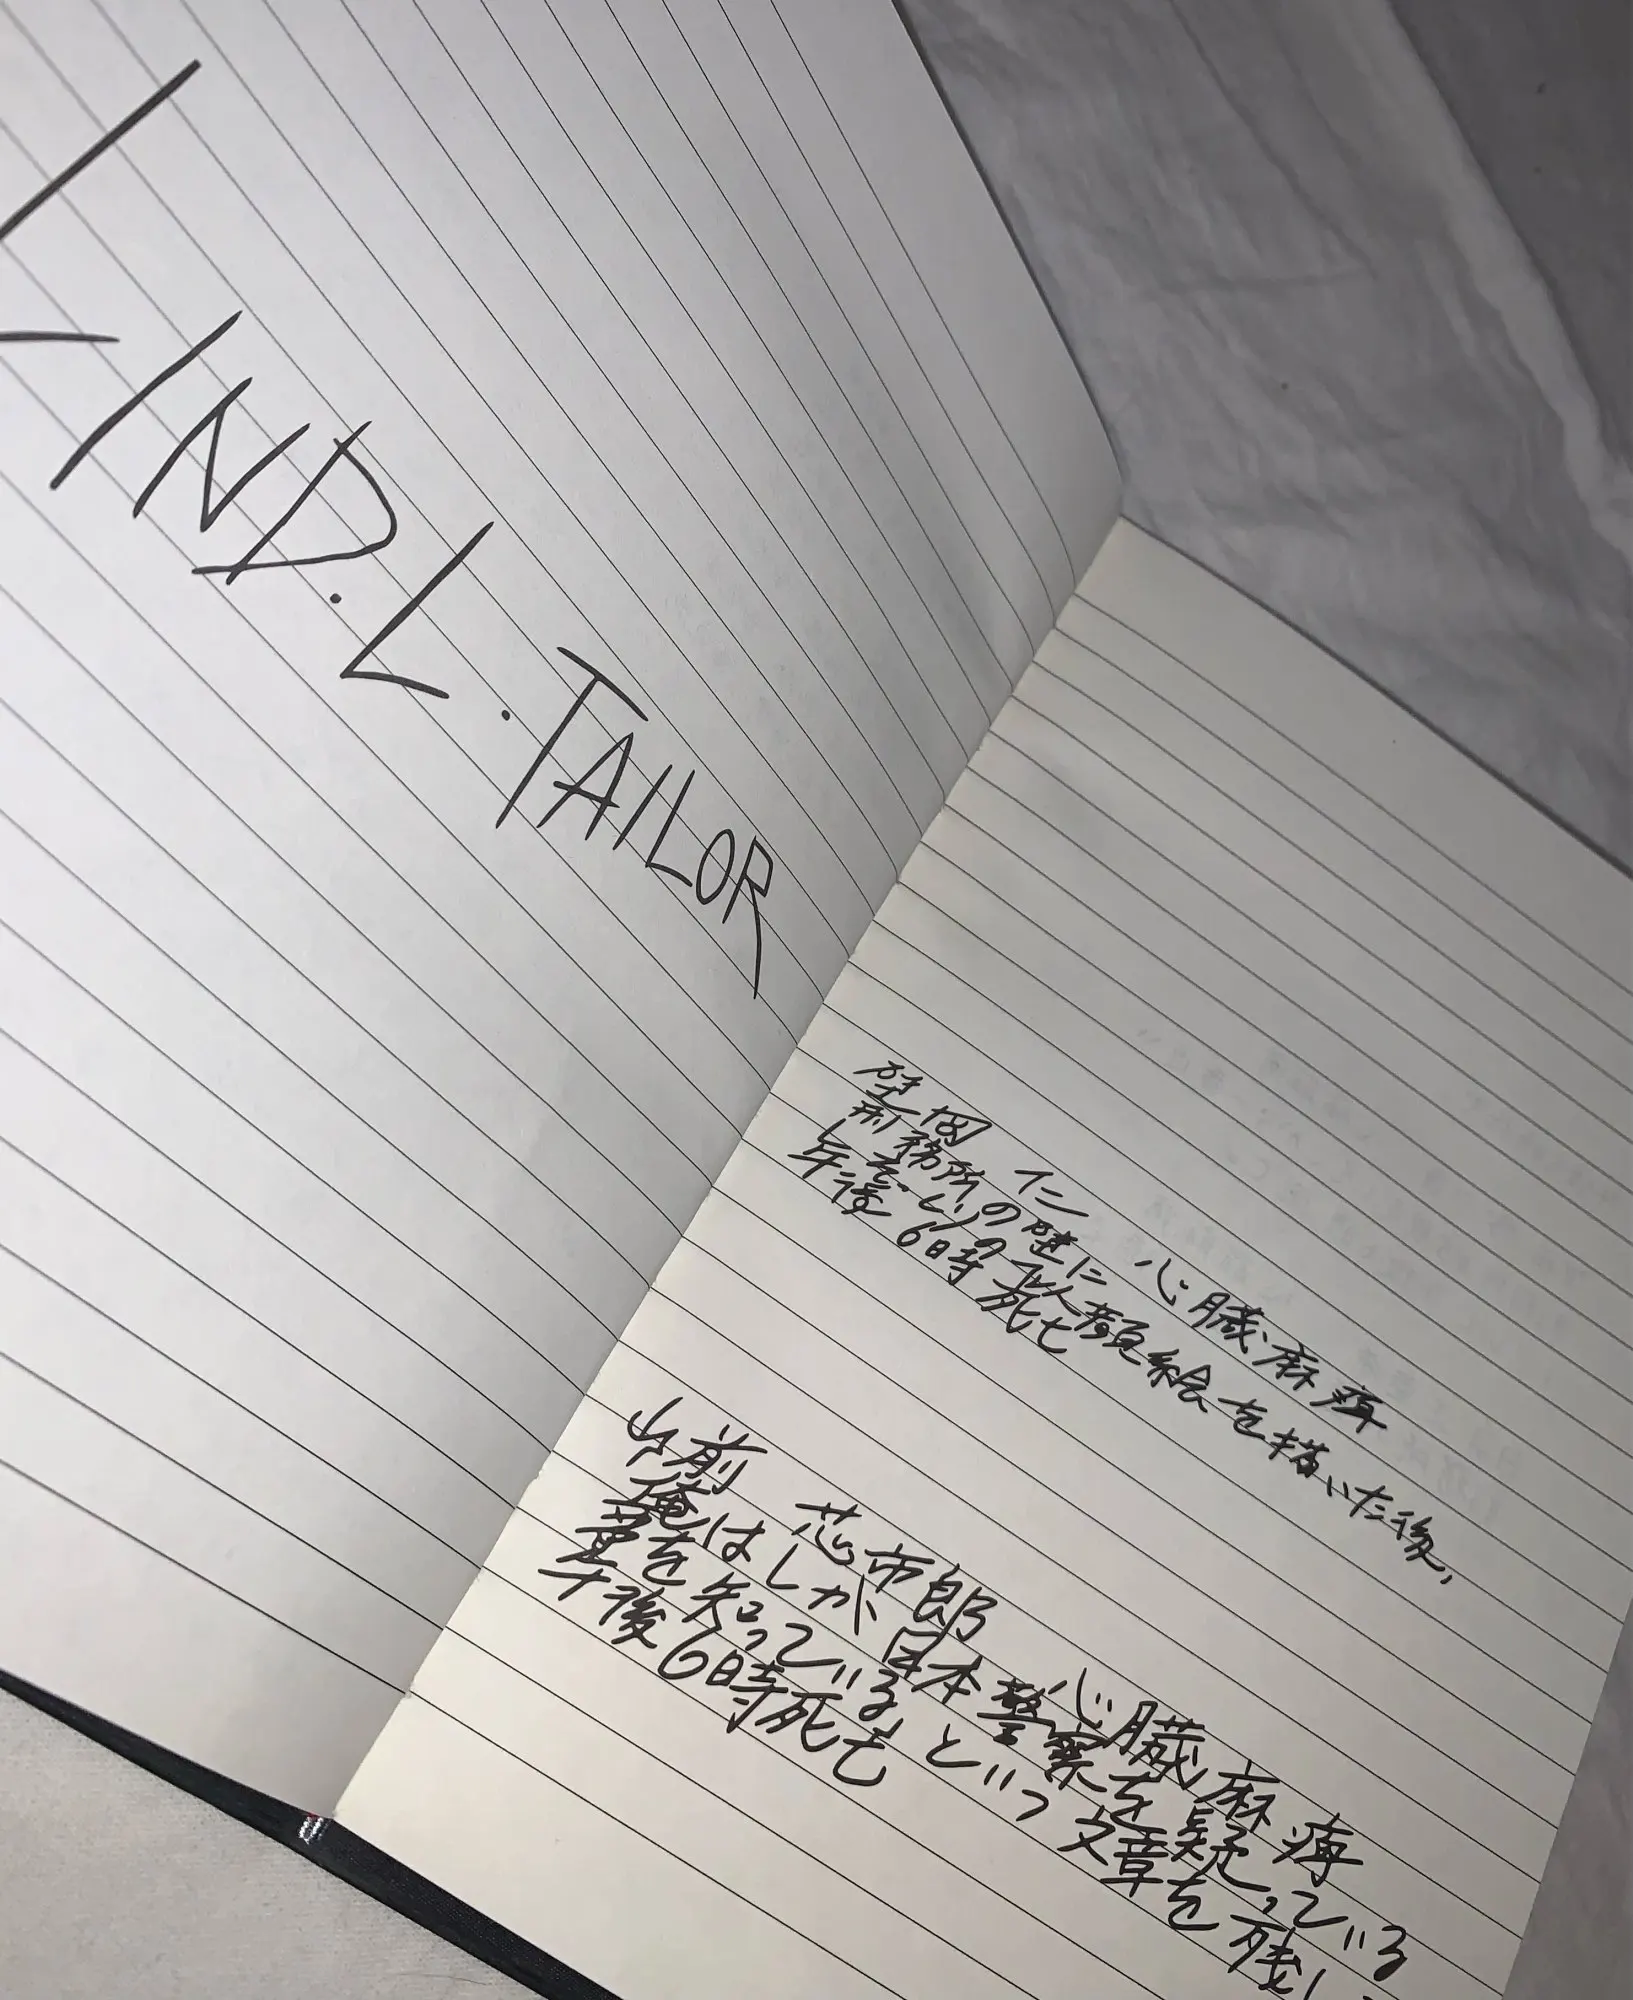 LIND.L.TAILOR
岡 仁 心臓麻痺
刑務所の壁に
の似顔絵を描いた後、
午後6時死亡
前 芯市郎 心臓麻痺
俺はしが日本警察を疑っている
事を知っているという文章を残し
午後6時死亡